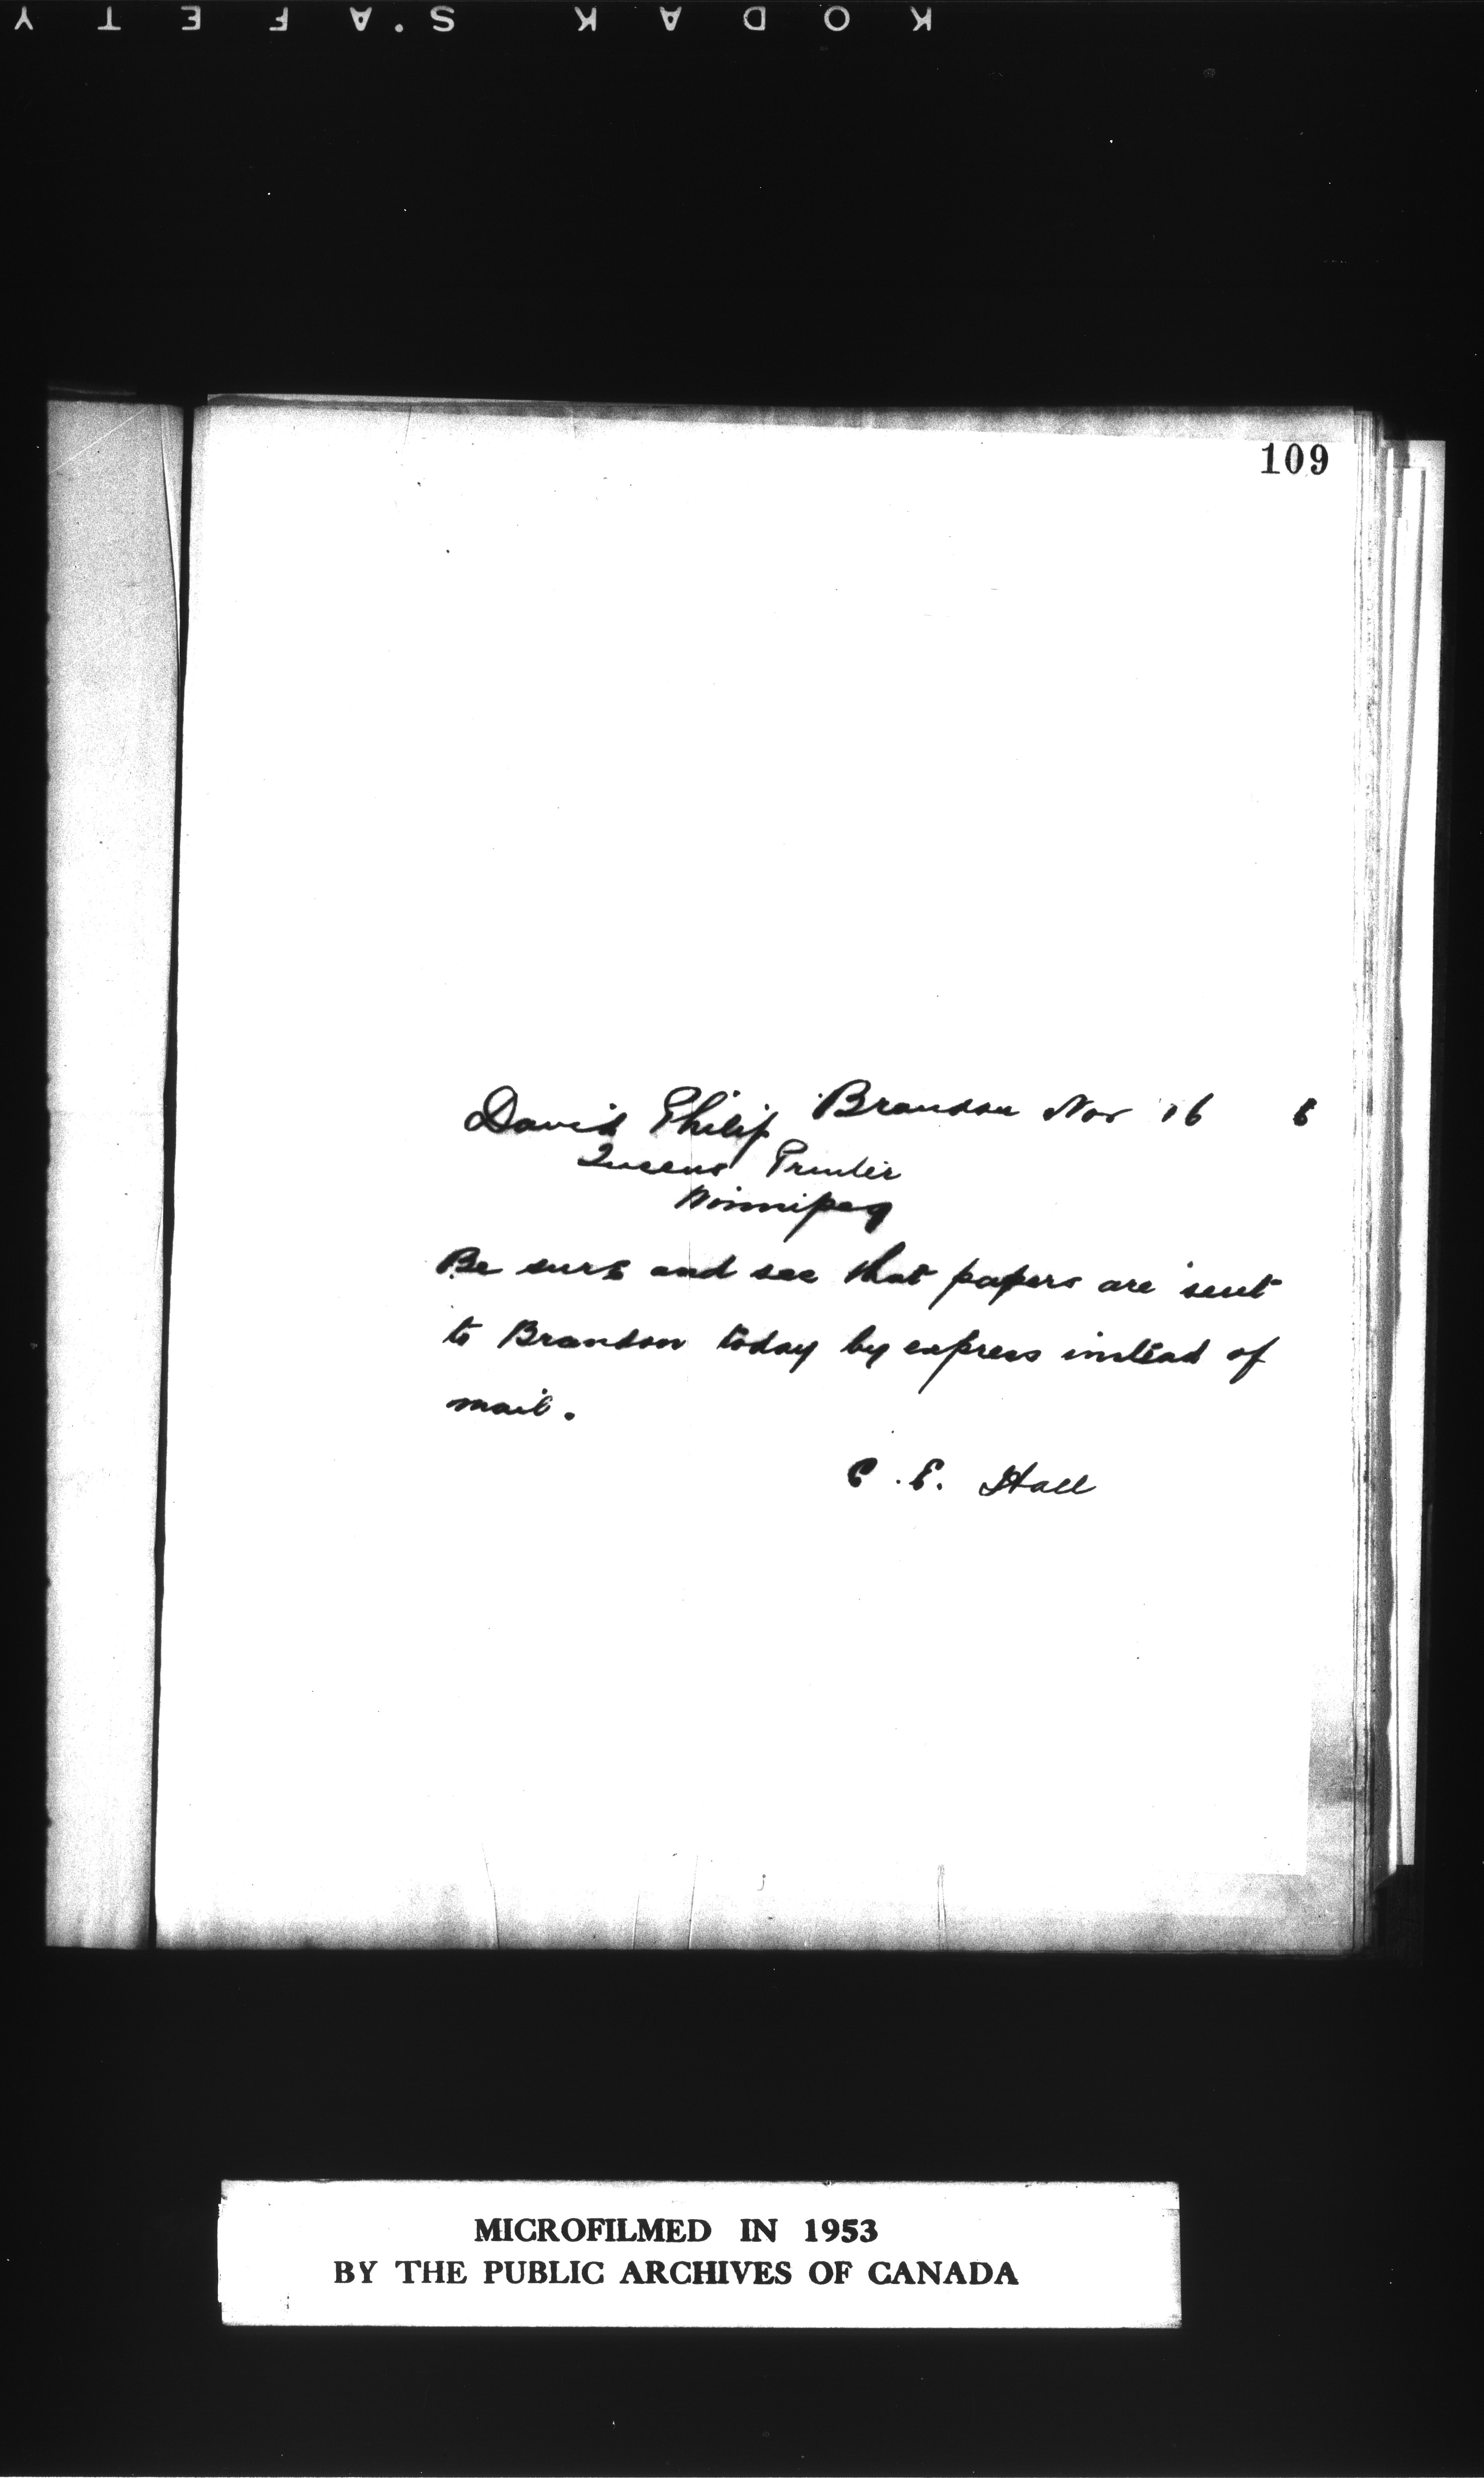 KODAK SAFETY
109
Brandon Nov 16 6
David Philip
Queens Printer
Winnipeg
Be sure and see that papers are sent
to Brandon today by express instead of
mail.
C. E. Hall
MICROFILMED IN 1953
BY THE PUBLIC ARCHIVES OF CANADA